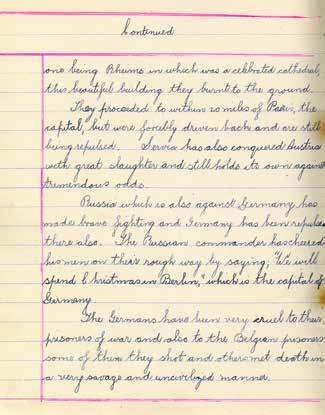 Continued
one being Rheims in which was a celebrated cathedral,
this beautiful building they burnt to the ground.
They proceeded to within 20 miles of Paris, the
capital, but were forcibly driven back and are still
being repulsed. Servia has also conquered Austria
with great slaughter and still holds its own against
tremendous odds.
Russia which is also against Germany has
made brave fighting and Germany has been repulsed
there also. The Russian commander has cheered
his men on their rough way by saying; "We will
spend Christmas in Berlin," which is the capital of
Germany.
The Germans have been very cruel to their
prisoners of war and also to the Belgian prisoners
some of them they shot and others met death in
a very savage and uncivilized manner.